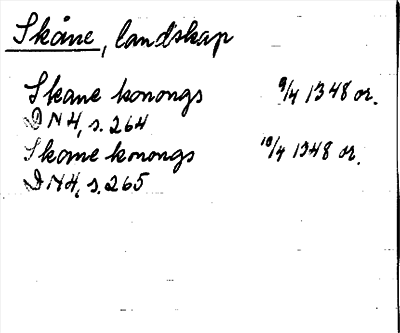 Skåne, landskap
Skane konongs 9/4 1348 or.
DN4, s. 264
Skone konongs 10/4 1348 or.
DN4, s. 265